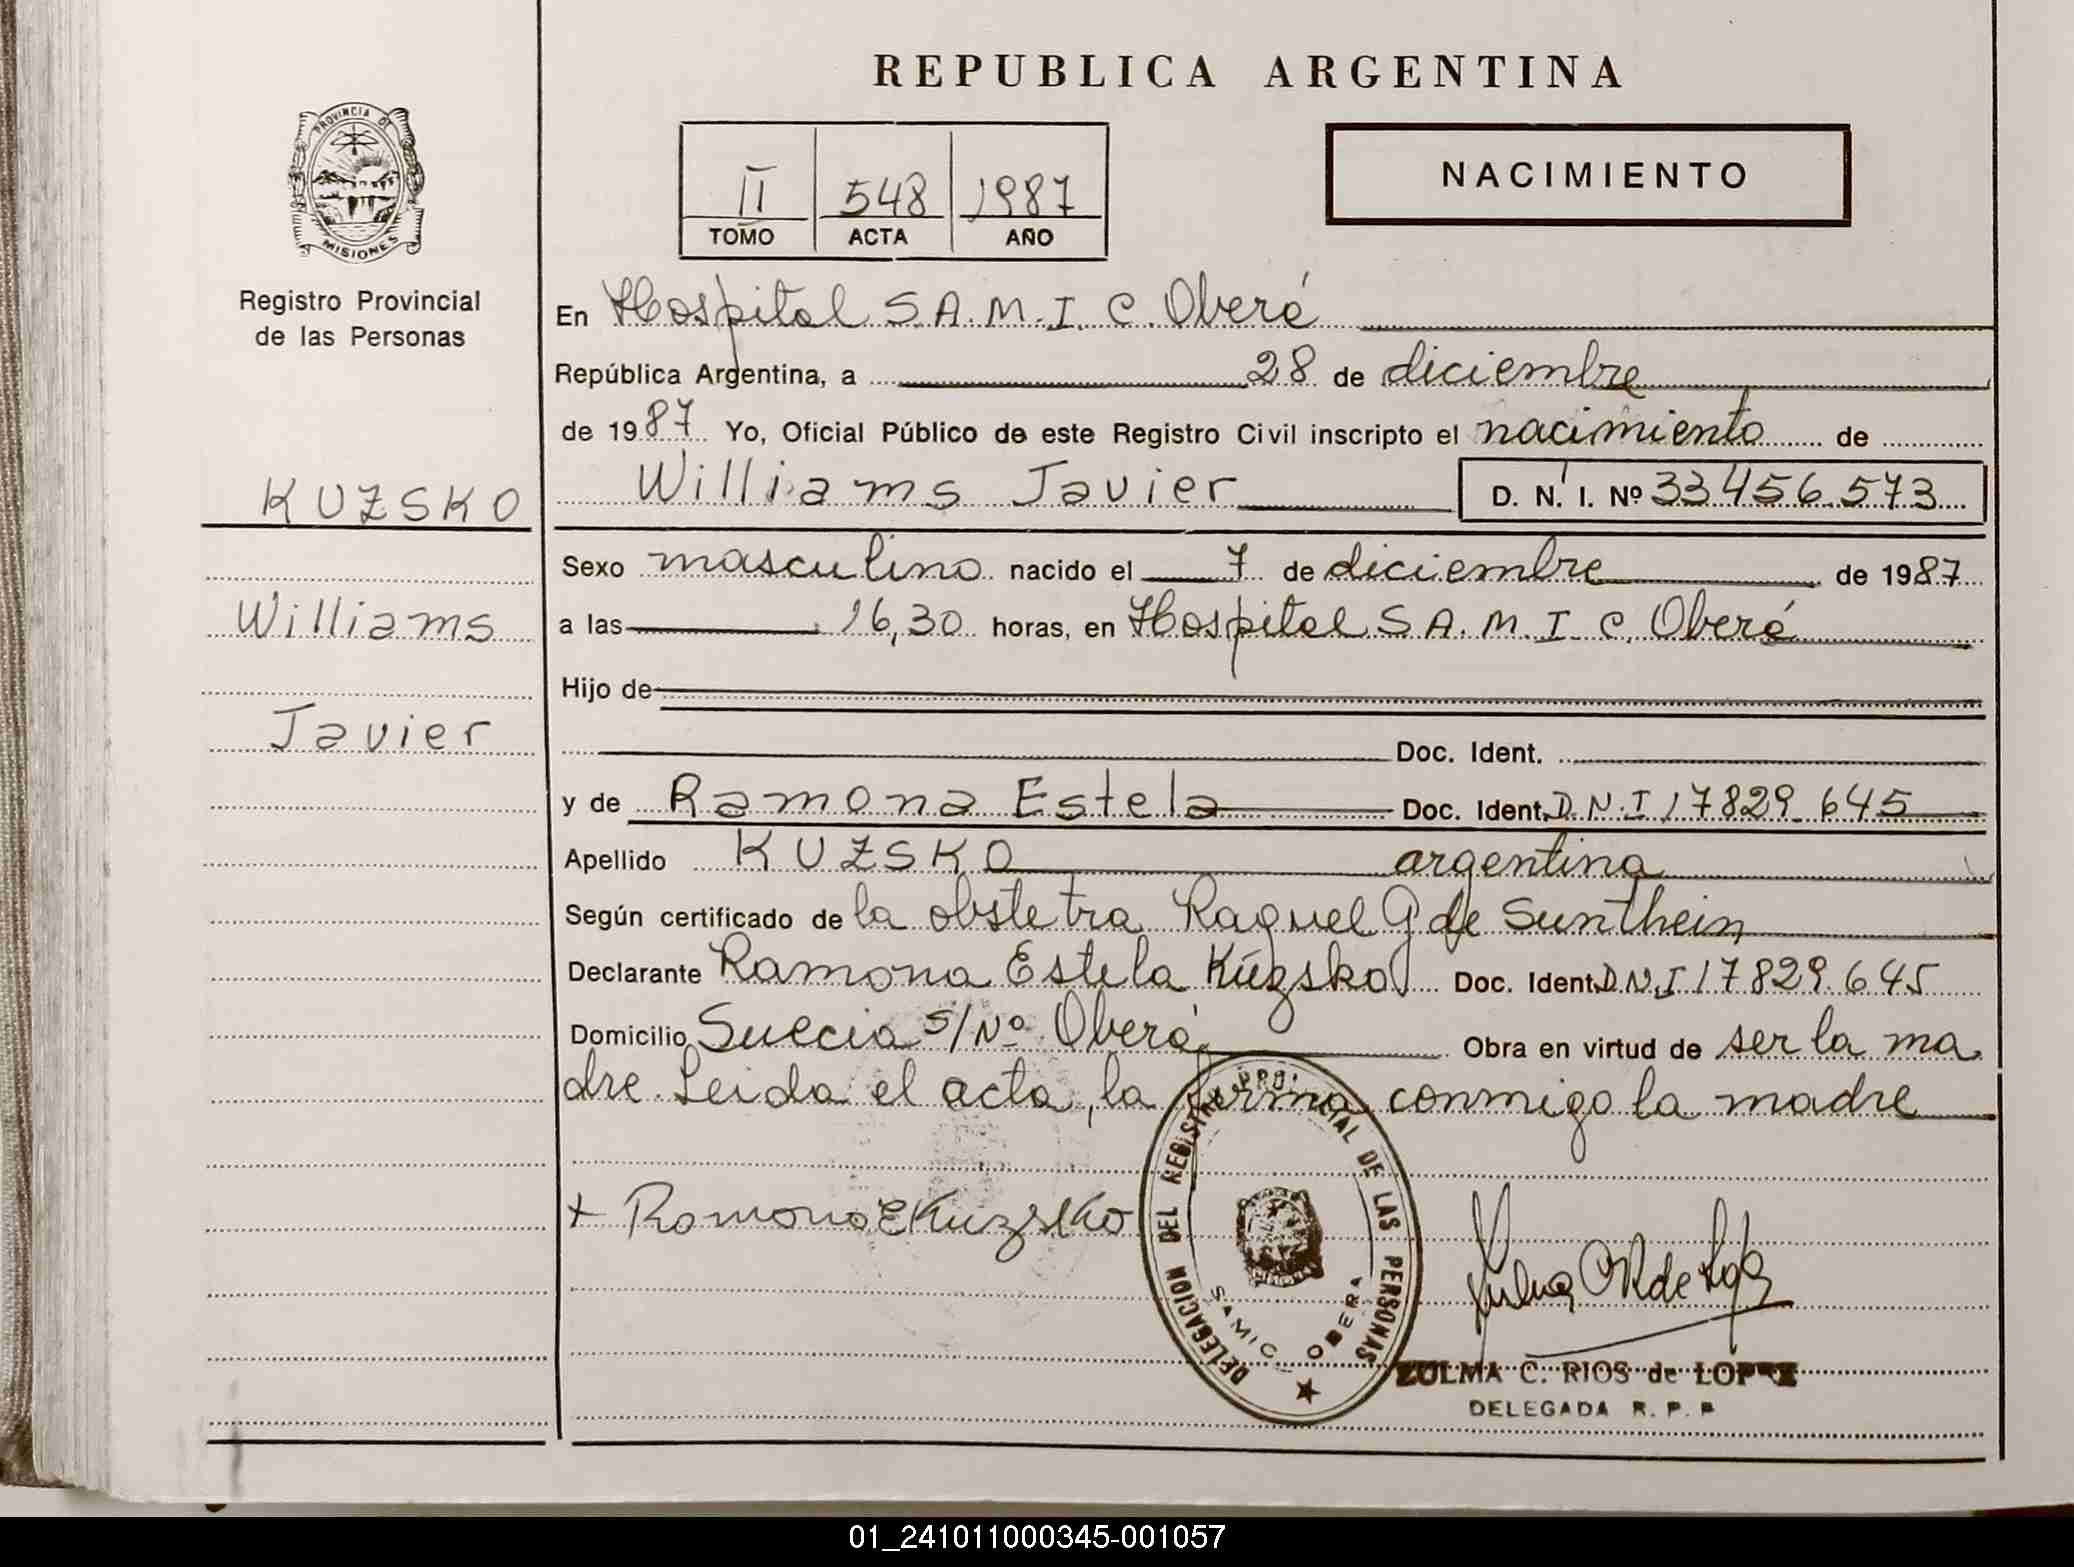 REPUBLICA ARGENTINA
PROVINCIA DE
MISIONES
Registro Provincial
de las Personas
II 548 1987
TOMO ACTA AÑO
NACIMIENTO
En Hospital S.A.M.I.C. Oberá
República Argentina, a 28 de diciembre
de 1987 Yo, Oficial Público de este Registro Civil inscripto el nacimiento de
KUZSKO
Williams Javier D. N. I. Nº 33.456.573
Sexo masculino nacido el 7 de diciembre de 1987
Williams
a las 16,30 horas, en Hospital S.A.M.I.C. Oberá
Hijo de
Javier
Doc. Ident.
y de Ramona Estela Doc. Ident. D.N.I 17829.645
Apellido KUZSKO argentina
Según certificado de la obstetra Raquel G de Sunthein
Declarante Ramona Estela Kuzsko Doc. Ident. D.N.I 17829.645
Domicilio Suecia S/Nº Oberá Obra en virtud de ser la ma
dre. Leida el acta, la firma conmigo la madre
+ Ramona E Kuzsko
DELEGACION DEL REGISTRO PROVINCIAL DE LAS PERSONAS
SAMIC OBERA
ZULMA C. RIOS de LOPEZ
DELEGADA R. P. P
01_241011000345-001057